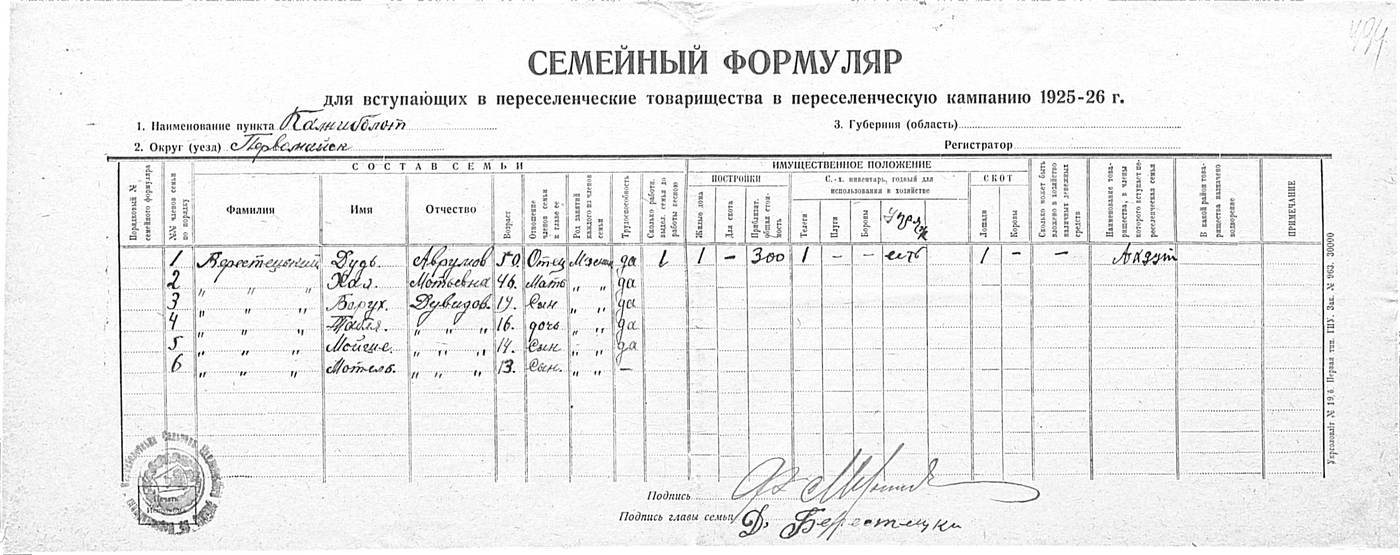 494
СЕМЕЙНЫЙ ФОРМУЛЯР
для вступающих в переселенческие товарищества в переселенческую кампанию 1925-26 г.
1. Наименование пункта Калниболот
3. Губерния (область)
2. Округ (уезд) Первомайск
Регистратор
Порядковый № семейного формуляра
№№ членов семьи по порядку
СОСТАВ СЕМЬИ
Фамилия
Имя
Отчество
Возраст
Отношение членов семьи к главе ее
Род занятий каждого из членов семьи
Трудоспособность
Сколько работн. выдел. семья до работы весною
ИМУЩЕСТВЕННОЕ ПОЛОЖЕНИЕ
ПОСТРОЙКИ
Жилые дома
Для скота
Приблизит. общая стоимость
С.-х. инвентарь, годный для использования в хозяйстве
Телеги
Плуги
Бороны
СКОТ
Лошади
Коровы
Сколько может быть вложено в хозяйство наличных денежных средств
Наименование товарищества, в члены которого вступает переселенческая семья
В какой район товарищества назначено водворение
ПРИМЕЧАНИЕ
1 Берестецкий Дудь. Аврумов 50. Отец да 1 1 – 300 1 – – есть 1 – –
2 " " " Хая. Мотьевна 46. Мать " " да
3 " " " Борух. Дувидов. 19. Сын " " да
4 " " " " " " 16. дочь " " да
5 " " " Мойше. " " " 14. Сын " " да
6 " " " Мотель. " " " 13. Сын. " " –
Подпись
Подпись главы семьи Д. Берестецки
Укрголовліт № 19.6. Первая тип. ГПУ. Зак. № 963. 30000